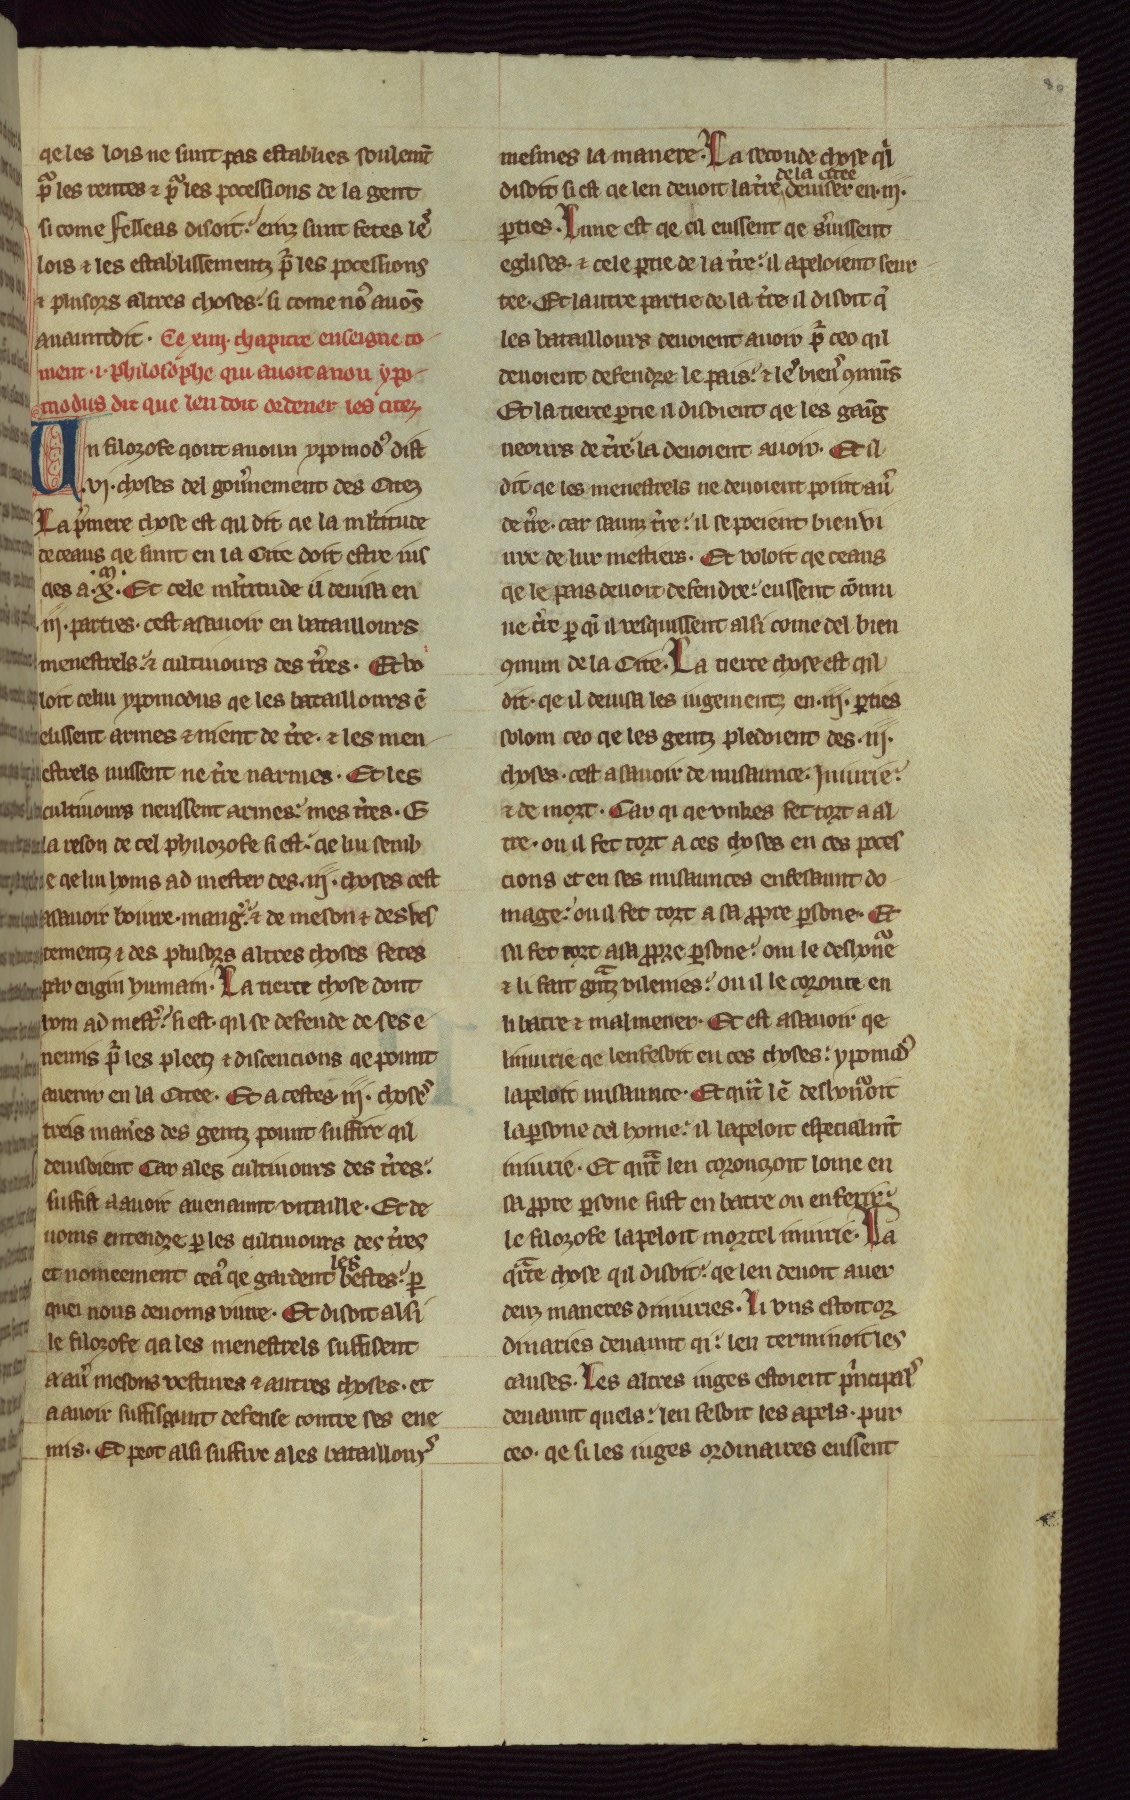 80
qe les lois ne sunt pas establies soulem̃t
pͣ les rentes ⁊ pͣ les pocessions de la gent
si come felleas disoit. einz sunt fetes leˢ
lois ⁊ les establissementz pͣ les pocessions
⁊ plusors altres choses. si come noꝰ auõs
auauntdit. Ce xiiij. chapitre enseigne co
ment .i. philosophe qui auoit a non ypo
modus dit que len doit ordener les citez
Un filozofe qout a noun ypomodꝰ dist
.vj. choses del gou̓nement des Citez
La p̓mere chose est qil dit qe la ml̓titude
de ceaus qe sunt en la Cite doit estre ius
qes a .x.ᵐ Et cele ml̓titude il deuisa en
.iij. parties. cest asauoir en bataillours
menestrels. ⁊ cultiuours des t̓res. Et vo
loit celui ypomodus qe les bataillours ẽ
elissent armes ⁊ nient de t̓re. ⁊ les men
estrels nussent ne t̓re narmes. Et les
cultiuours neussent armes. mes t̓res. E
la reson de cel philozofe si est. qe lui semb
e qe lui homs ad mester des .iij. choses cest
asauoir boiure. mang̓. ⁊ de meson ⁊ des ves
tementz ⁊ des plusors altres choses fetes
par engin humain. La tierce chose dont
hom ad mest̓. si est. qil se defende de ses e
nemis pͣ les pleetz ⁊ discencions qe point
auenir en la Citee. Et a cestes .iij. choseˢ
treis man̓es des gentz point suffire qil
deuisoient Car a les cultiuours des t̓res.
suffist a auoir auenaunt vitaille. Et de
uoms entendre ꝑ les cultiuours des t̓res
et nomeement ceaͧ qe gardent les bestes. ꝑ
quei nous deuoms viure. Et disoit alsi
le filozofe qa les menestrels suffisent
a au̓ mesons vestures ⁊ autres choses. et
a auoir suffisaunt defense contre ses ene
mis. Et peot alsi suffire a les bataillourˢ
mesmes la manere. La seconde chose qͥl
disoit si est qe len deuoit la t̓re de la citee deuiser en .iij.
ꝑties. Lune est qe cil eussent qe s̓uissent
eglises. ⁊ cele ꝑtie de la t̓re. il apeloient seur
tee. Et lautre partie de la t̓re il disoit qͥ
les bataillours deuoient auoir pͣ ceo qil
deuoient defendre le pais. ⁊ leˢ bienˢ ꝯmũs
Et la tierce ꝑtie il disoient qe les gaãg
neours de t̓re la deuoient auoir. Et il
dit qe les menestrels ne deuoient point au̓
de t̓re. car saunz t̓re. il se poeient bien vi
ure de lur mestiers. Et voloit qe ceaus
qe le pais deuoit defendre. eussent cõmu
ne t̓re ꝑ qͥ il vesquissent alsi come del bien
ꝯmun de la Cite. La tierce chose est qil
dit. qe il deuisa les iugementz en .iij. ꝑties
solom ceo qe les gentz pledoient des .iij.
choses. cest asauoir de nusaunce. Iniurie.
⁊ de mort. Car qi qe vnkes fet tort a al
tre. ou il fet tort a ces choses en ces poces
cions et en ses nusaunces enfesaunt do
mage. ou il fet tort a sa ꝓpre ꝑsone. Et
sil fet tort a sa ꝓpre ꝑsone. oui le deshonͣe
⁊ li fait gͣntz vilenies. ou il le coronce en
li batre ⁊ malmener. Et est asauoir qe
liniurie qe len fesoit en ces choses. ypomodꝰ
lapeloit nusaunce. Et qͣnt lẽ deshonͣoit
la ꝑsone del home. il lapeloit especialm̃t
iniurie. Et qͣnt len coronczoit lome en
sa ꝓpre ꝑsone fust en batre ou en ferir.
le filozofe lapeloit mortel iniurie. La
qͣrte chose qil disoit. qe len deuoit auer
deuz maneres diniuries. Li vns estoit or
dinaries deuaunt qi. len terminoit les
causes. Les altres iuges estoient p̓ncipalˢ
deuaunt quels. len fesoit les apels. pur
ceo. qe si les iuges ordinaires eussent